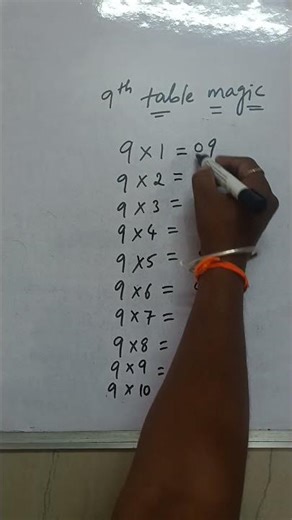 9th table magic
9 × 1 = 09
9 × 2 =
9 × 3 =
9 × 4 =
9 × 5 =
9 × 6 =
9 × 7 =
9 × 8 =
9 × 9 =
9 × 10